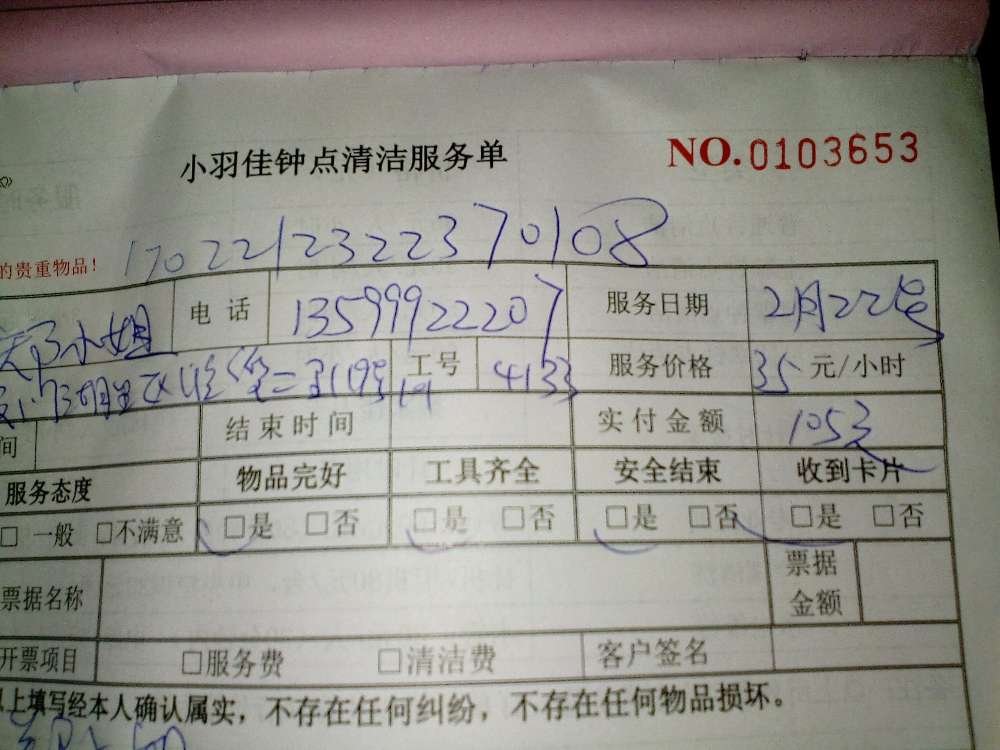 小羽佳钟点清洁服务单 NO.0103653
的贵重物品! 1702212322370108
小姐 电话 13599922207 服务日期 2月22号
工号 4133 服务价格 35 元/小时
间 结束时间 实付金额 105元
服务态度 物品完好 工具齐全 安全结束 收到卡片
□ 一般 □不满意 □是 □否 □是 □否 □是 □否 □是 □否
票据名称 票据金额
开票项目 □服务费 □清洁费 客户签名
以上填写经本人确认属实，不存在任何纠纷，不存在任何物品损坏。